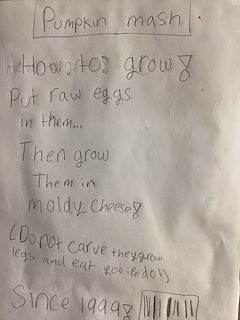 Pumpkin mash
How to grow!
Put raw eggs
in them...
Then grow
Them in
moldy cheese!
(Do not carve they grow
legs and eat you if you do!)
Since 1999!